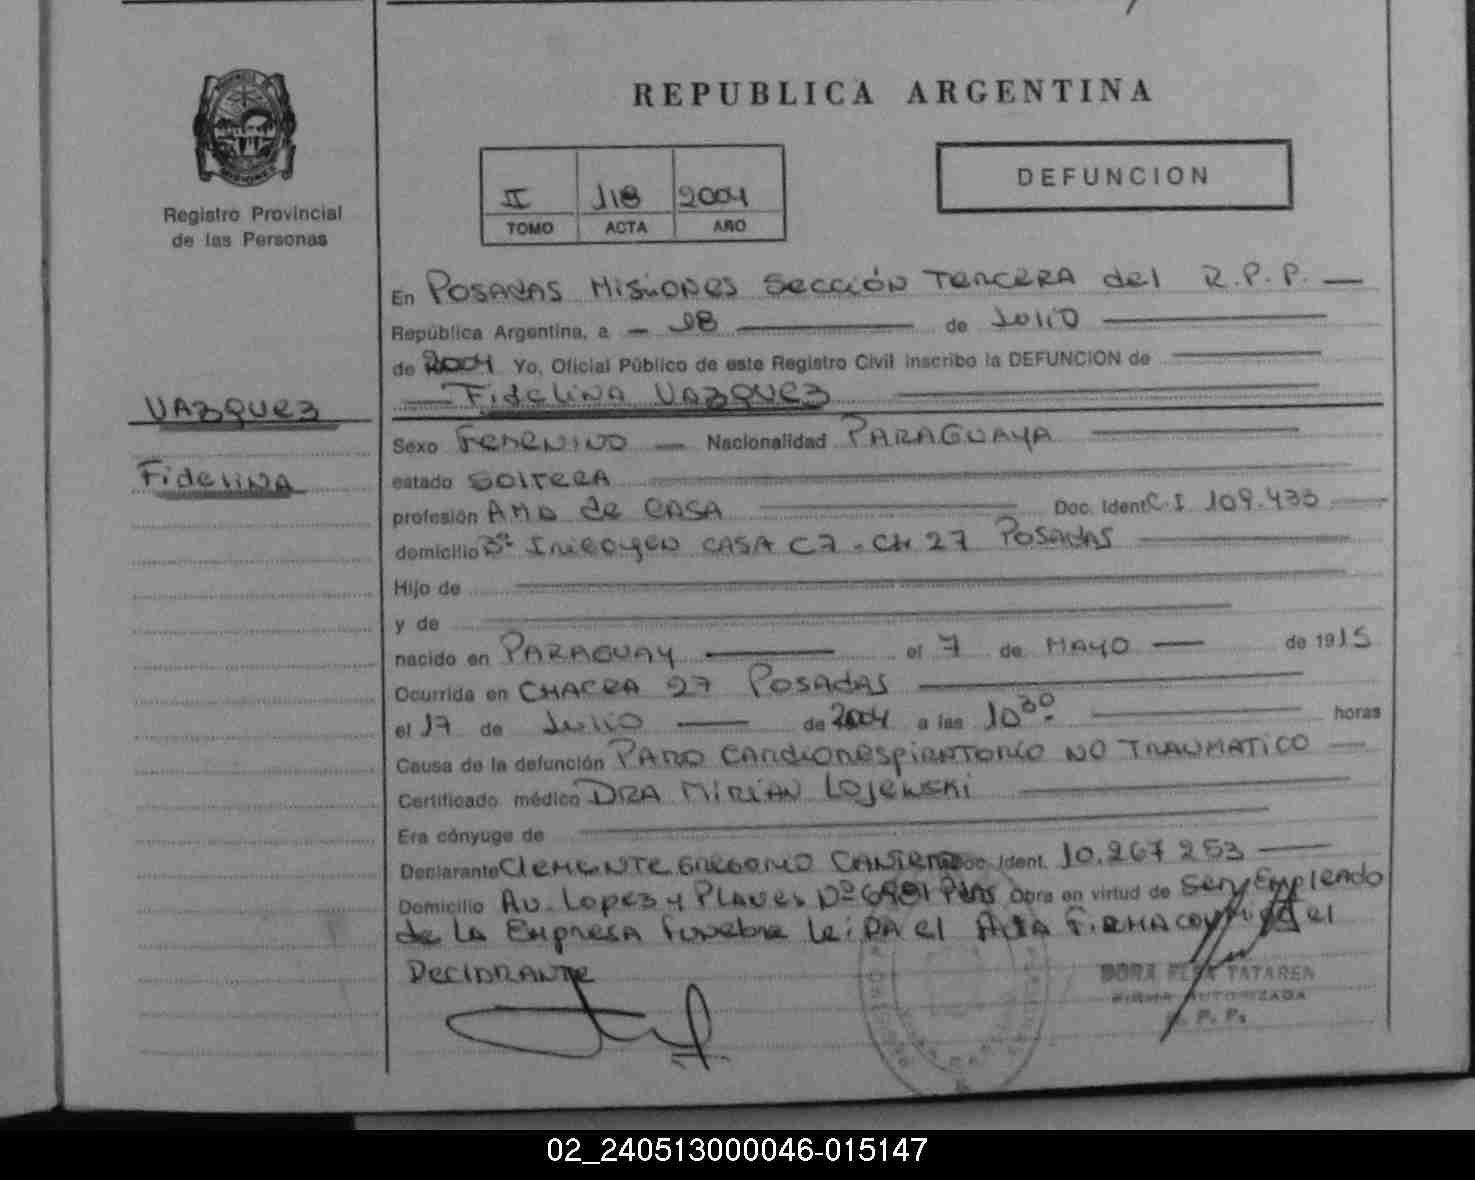 REPUBLICA ARGENTINA
Registro Provincial
de las Personas
II 118 2004
TOMO ACTA AÑO
DEFUNCION
VAZQUEZ
Fidelina
En POSADAS MISIONES Sección TERCERA del R.P.P.
República Argentina, a 18 de Julio
de 2004 Yo, Oficial Público de este Registro Civil inscribo la DEFUNCION de
Fidelina VAZQUEZ
Sexo Femenino Nacionalidad PARAGUAYA
estado SOLTERA
profesión AMA de CASA Doc. Ident. C.I 109.433
domicilio CASA C7 - CH 27 POSADAS
Hijo de
y de
nacido en PARAGUAY el 7 de MAYO de 1915
Ocurrida en CHACRA 27 POSADAS
el 17 de Julio de 2004 a las 10 30 horas
Causa de la defunción PARO CARDIORESPIRATORIO NO TRAUMATICO
Certificado médico DRA MIRIAN LOJEWSKI
Era cónyuge de
Declarante CLEMENTE GREGORIO Doc. Ident. 10.267 253
Domicilio AV. LOPEZ Y PLANES Nº Obra en virtud de ser Empleado
de LA EMPRESA funebre Leida el Acta FIRMA el
DECLARANTE
DORA TATAREN
FIRMA AUTORIZADA
R. P. P.
02_240513000046-015147